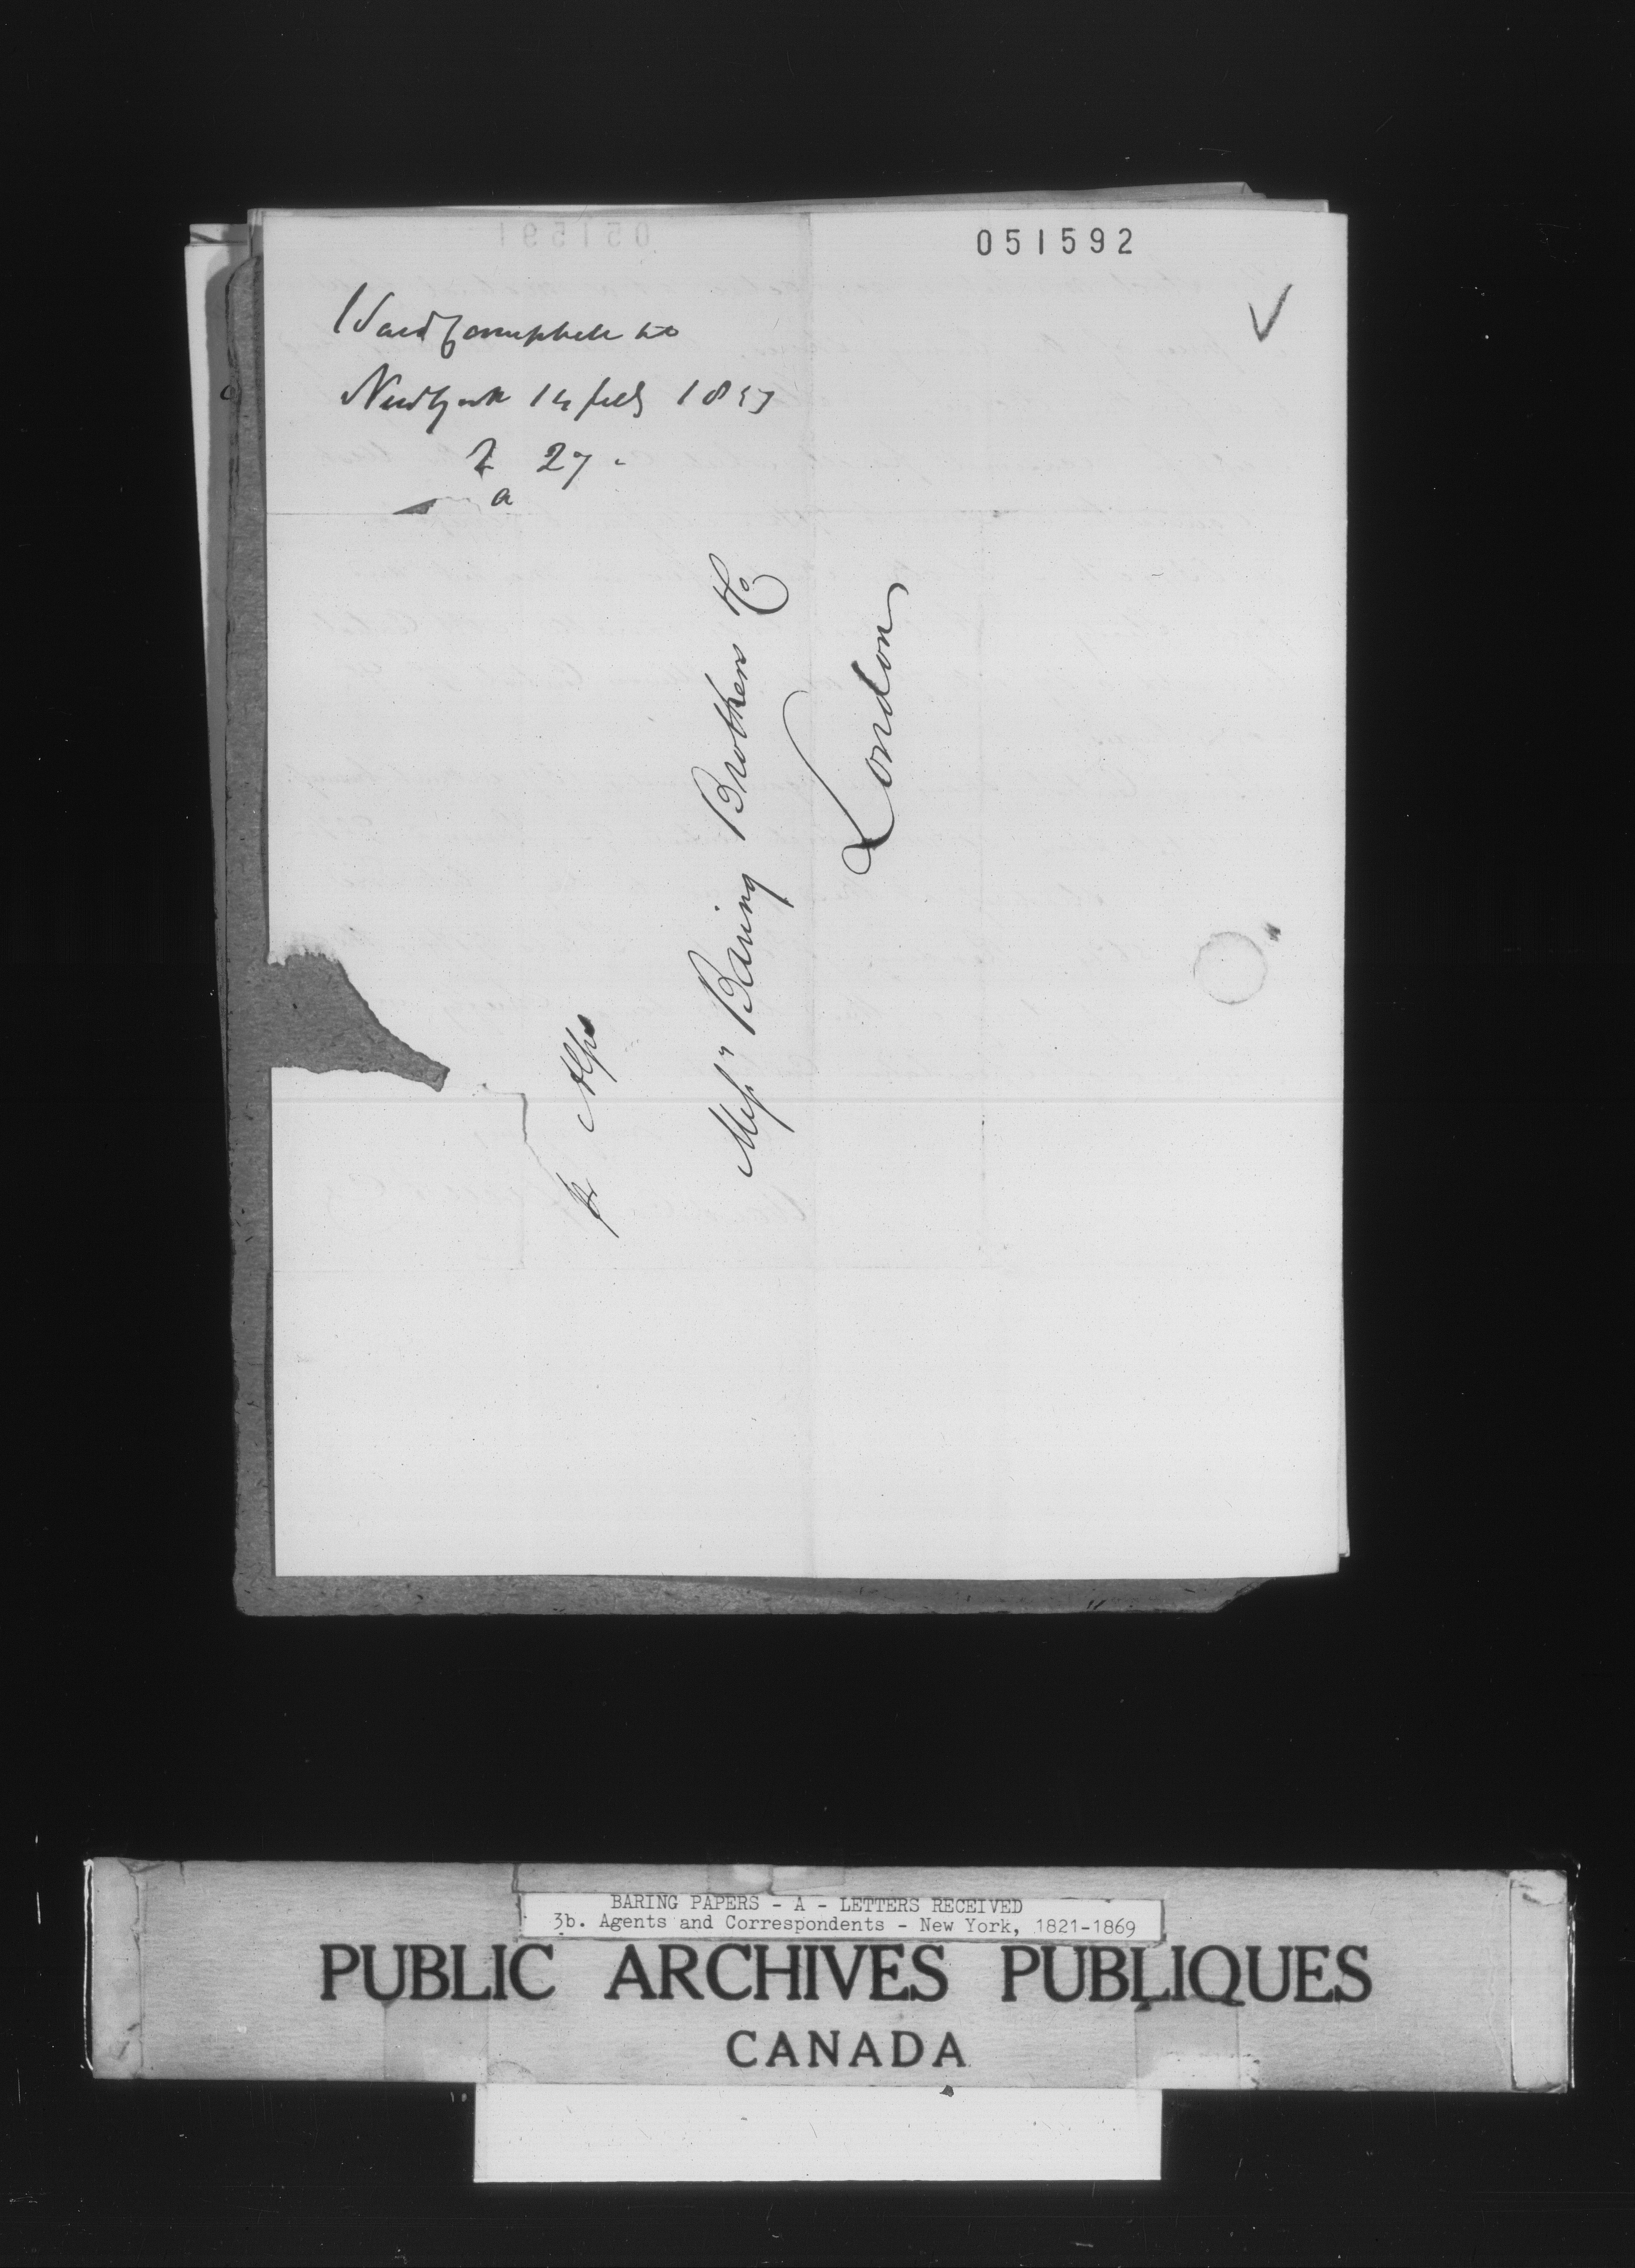 051592
Ward Campbell & Co
New York 14 feb 1857
R 27
a
pr Alps
Messrs Baring Brothers & Co
London
BARING PAPERS - A - LETTERS RECEIVED
3b. Agents and Correspondents - New York, 1821-1869
PUBLIC ARCHIVES PUBLIQUES
CANADA